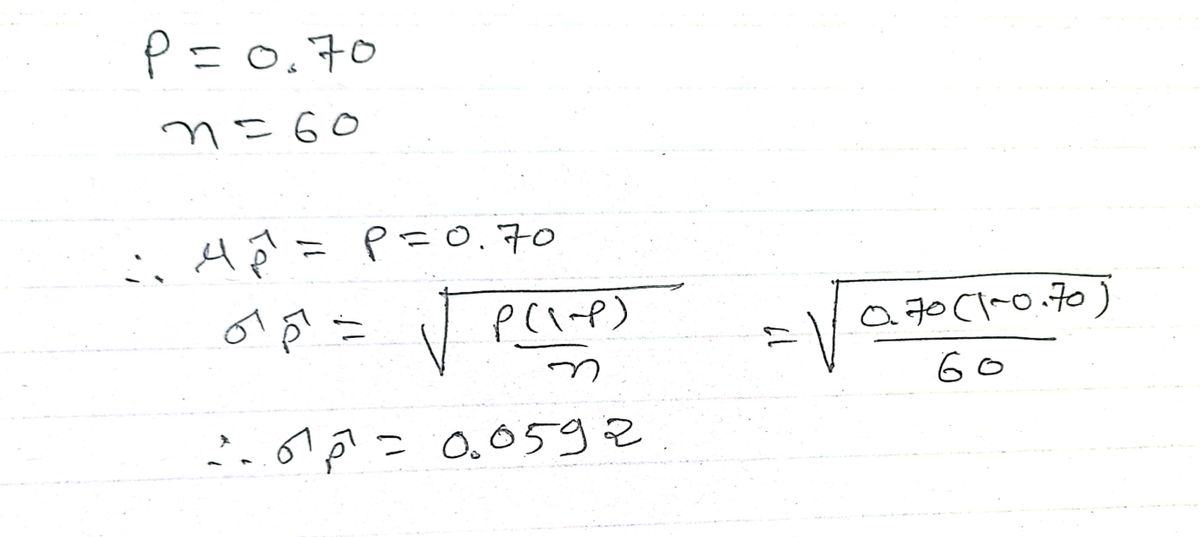 P = 0.70
n = 60
∴ μp̂ = P = 0.70
σp̂ = √(P(1-P)/n) = √(0.70(1-0.70)/60)
∴ σp̂ = 0.0592